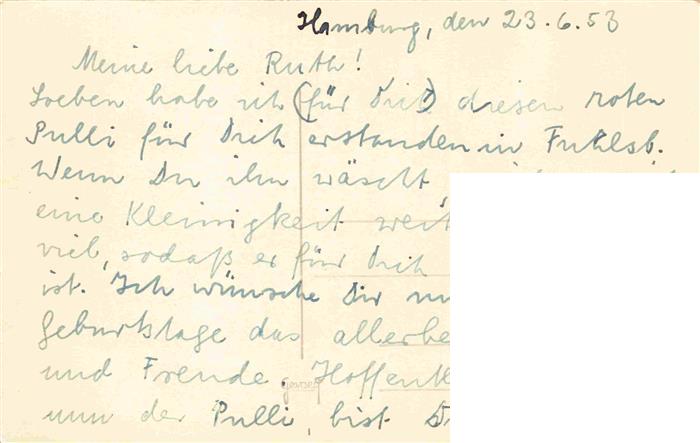 Hamburg, den 23.6.53
Meine liebe Ruth!
Soeben habe ich (für Dich) diesen roten
Pulli für Dich erstanden in Fuhlsb.
Wenn Du ihn wäscht
eine Kleinigkeit
viel, sodaß er für Dich
ist. Ich wünsche Dir
Geburtstage das
und Freude. 
nun der Pulli, bist